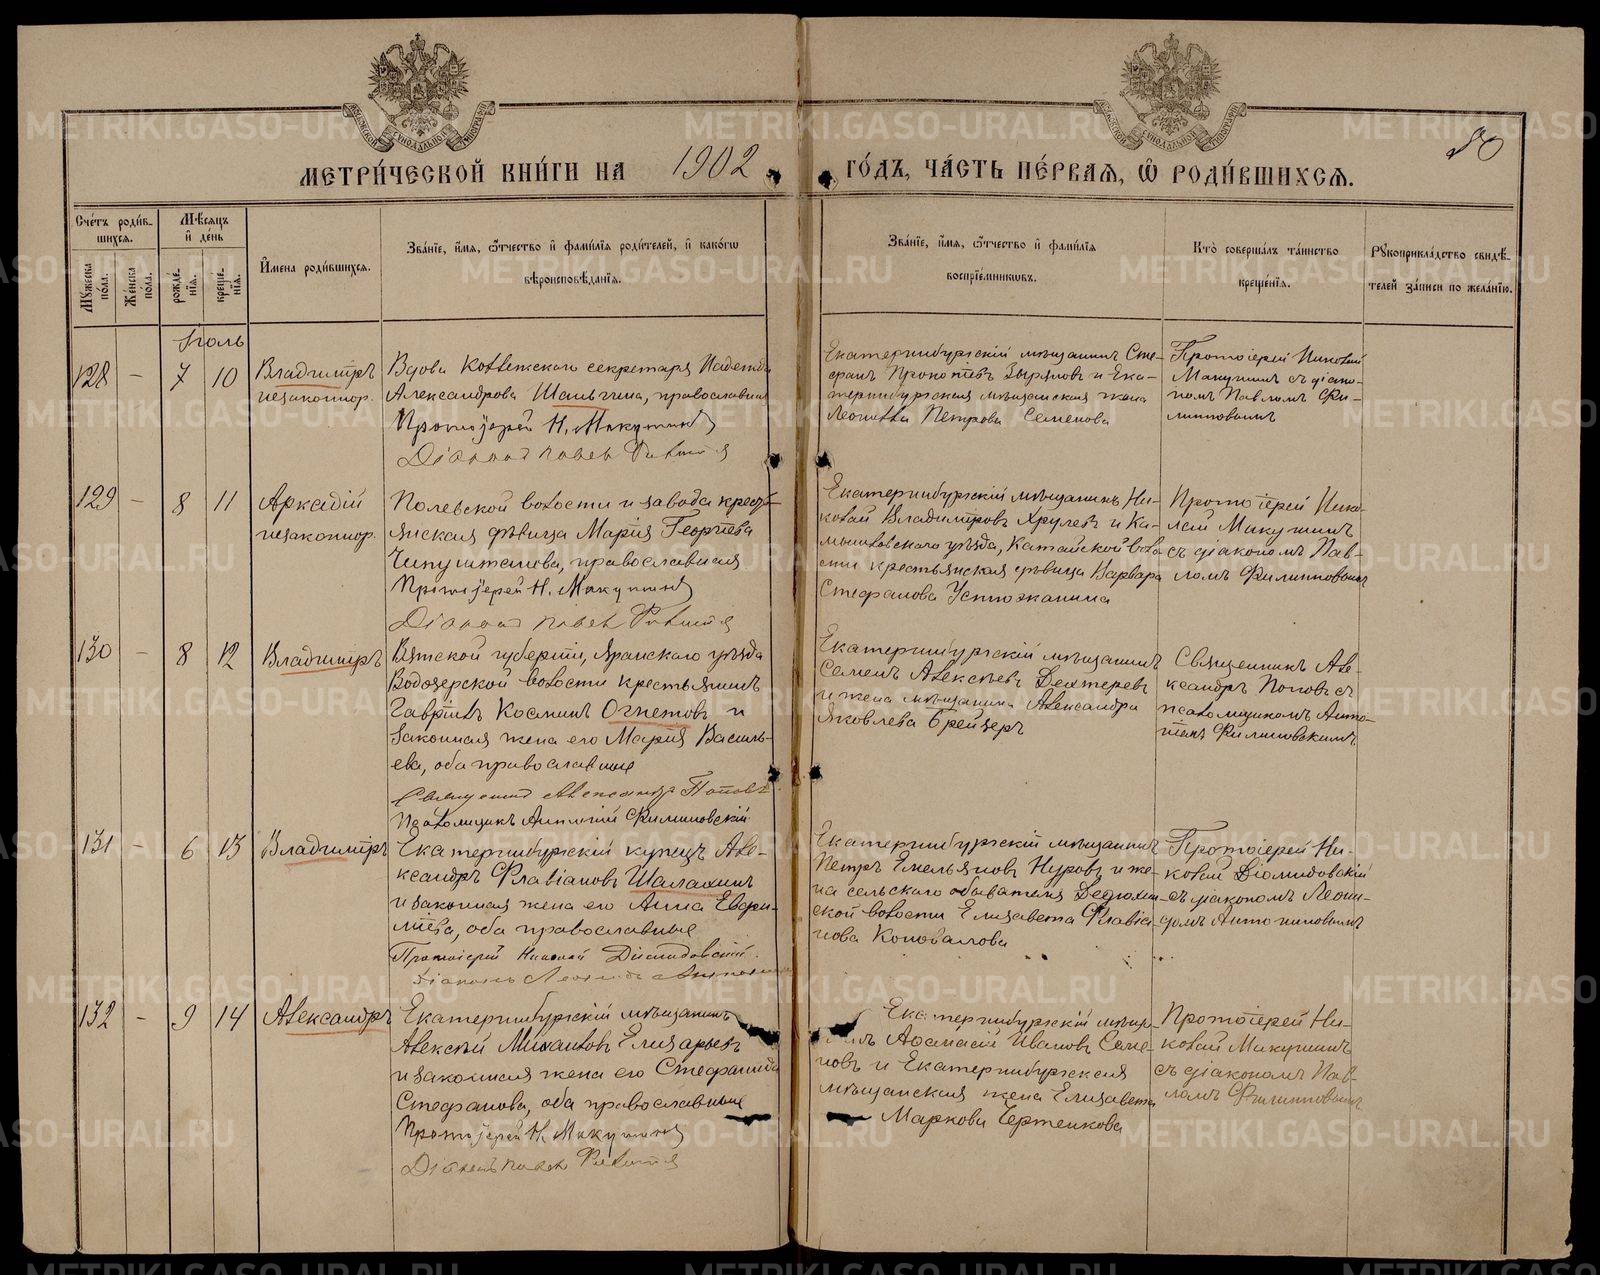 МЕТРИ́ЧЕСКОЙ КНИ́ГИ НА 1902 ГО́ДЪ, ЧА́СТЬ ПЕ́РВАЯ, Ѡ҆ РОДИ́ВШИХСЯ.
80
Сче́тъ роди́в-
шихся.
Мѣ́сяцъ
и҆ де́нь
Мꙋ́жеска
по́ла.
Же́нска
по́ла.
рожде́-
нїя.
креще́-
нїя.
И҆мена роди́вшихся.
Зва́нїе, и҆́мя, ѻ҆́тчество и҆ фами́лїя роди́телей, и҆ како́гѡ
вѣроисповѣ́данїя.
Зва́нїе, и҆́мя, ѻ҆́тчество и҆ фами́лїя
воспрїе́мниковъ.
Кто̀ соверша́лъ та́инство
креще́нїя.
Рꙋкоприкла́дство свидѣ́-
телей за́писи по жела́нїю.
Іюль
128 - 7 10
Владиміръ
незаконнор.
Вдова Коллежскаго секретаря Надежда
Александрова Шаньгина, православная
Протоіерей Н. Макушинъ
Діаконъ Павел
Екатеринбургскій мѣщанинъ Сте-
фанъ Прокопіевъ Зыряновъ и Ека-
теринбургская мѣщанская жена
Леонилла Петрова Семенова
Протоіерей Николай
Макушинъ съ діако-
номъ Павломъ Фи-
липповымъ
129 - 8 11
Аркадій
незаконнор.
Полевской волости и завода кресть-
янская дѣвица Марія Георгіева
Чипуштанова, православная
Протоіерей Н. Макушинъ
Діаконъ Павел
Екатеринбургскій мѣщанинъ Ни-
колай Владиміровъ Хрулевъ и Ка-
мышловскаго уѣзда, Катайской воло-
сти крестьянская дѣвица Варвара
Стефанова Устюжанина
Протоіерей Нико-
лай Макушинъ
съ діакономъ Пав-
ломъ Филипповымъ
130 - 8 12
Владиміръ
Вятской губерніи, Яранскаго уѣзда
Водозерской волости крестьянинъ
Гавріилъ Косминъ Огнетовъ и
законная жена его Марія Василь-
ева, оба православные
Священникъ Александръ Поповъ
Псаломщикъ Антоній Филиповскій
Екатеринбургскій мѣщанинъ
Семенъ Алексѣевъ Дехтеревъ
и жена мѣщанина Александра
Яковлева Брейзеръ
Священникъ Але-
ксандръ Поповъ съ
псаломщикомъ Анто-
ніемъ Филиповскимъ
131 - 6 13
Владиміръ
Екатеринбургскій купецъ Але-
ксандръ Флавіановъ Шалахинъ
и законная жена его Анна Евфи-
міева, оба православные
Протоіерей Николай Діомидовскій
Діаконъ Леонидъ
Екатеринбургскій мѣщанинъ
Петръ Емельяновъ Нуровъ и же-
на сельскаго обывателя Дедюхин-
ской волости Елизавета Флавіа-
нова Коновалова
Протоіерей Ни-
колай Діомидовскій
съ діакономъ Леони-
домъ Антониновымъ
132 - 9 14
Александръ
Екатеринбургскій мѣщанинъ
Алексѣй Михаиловъ Елизарьевъ
и законная жена его Стефанида
Стефанова, оба православные
Протоіерей Н. Макушинъ
Діаконъ Павел
Екатеринбургскій мѣща-
нинъ Аѳанасій Ивановъ Семе-
новъ и Екатеринбургская
мѣщанская жена Елизавета
Маркова Чертенкова
Протоіерей Ни-
колай Макушинъ
съ діакономъ Пав-
ломъ Филипповымъ
METRIKI.GASO-URAL.RU